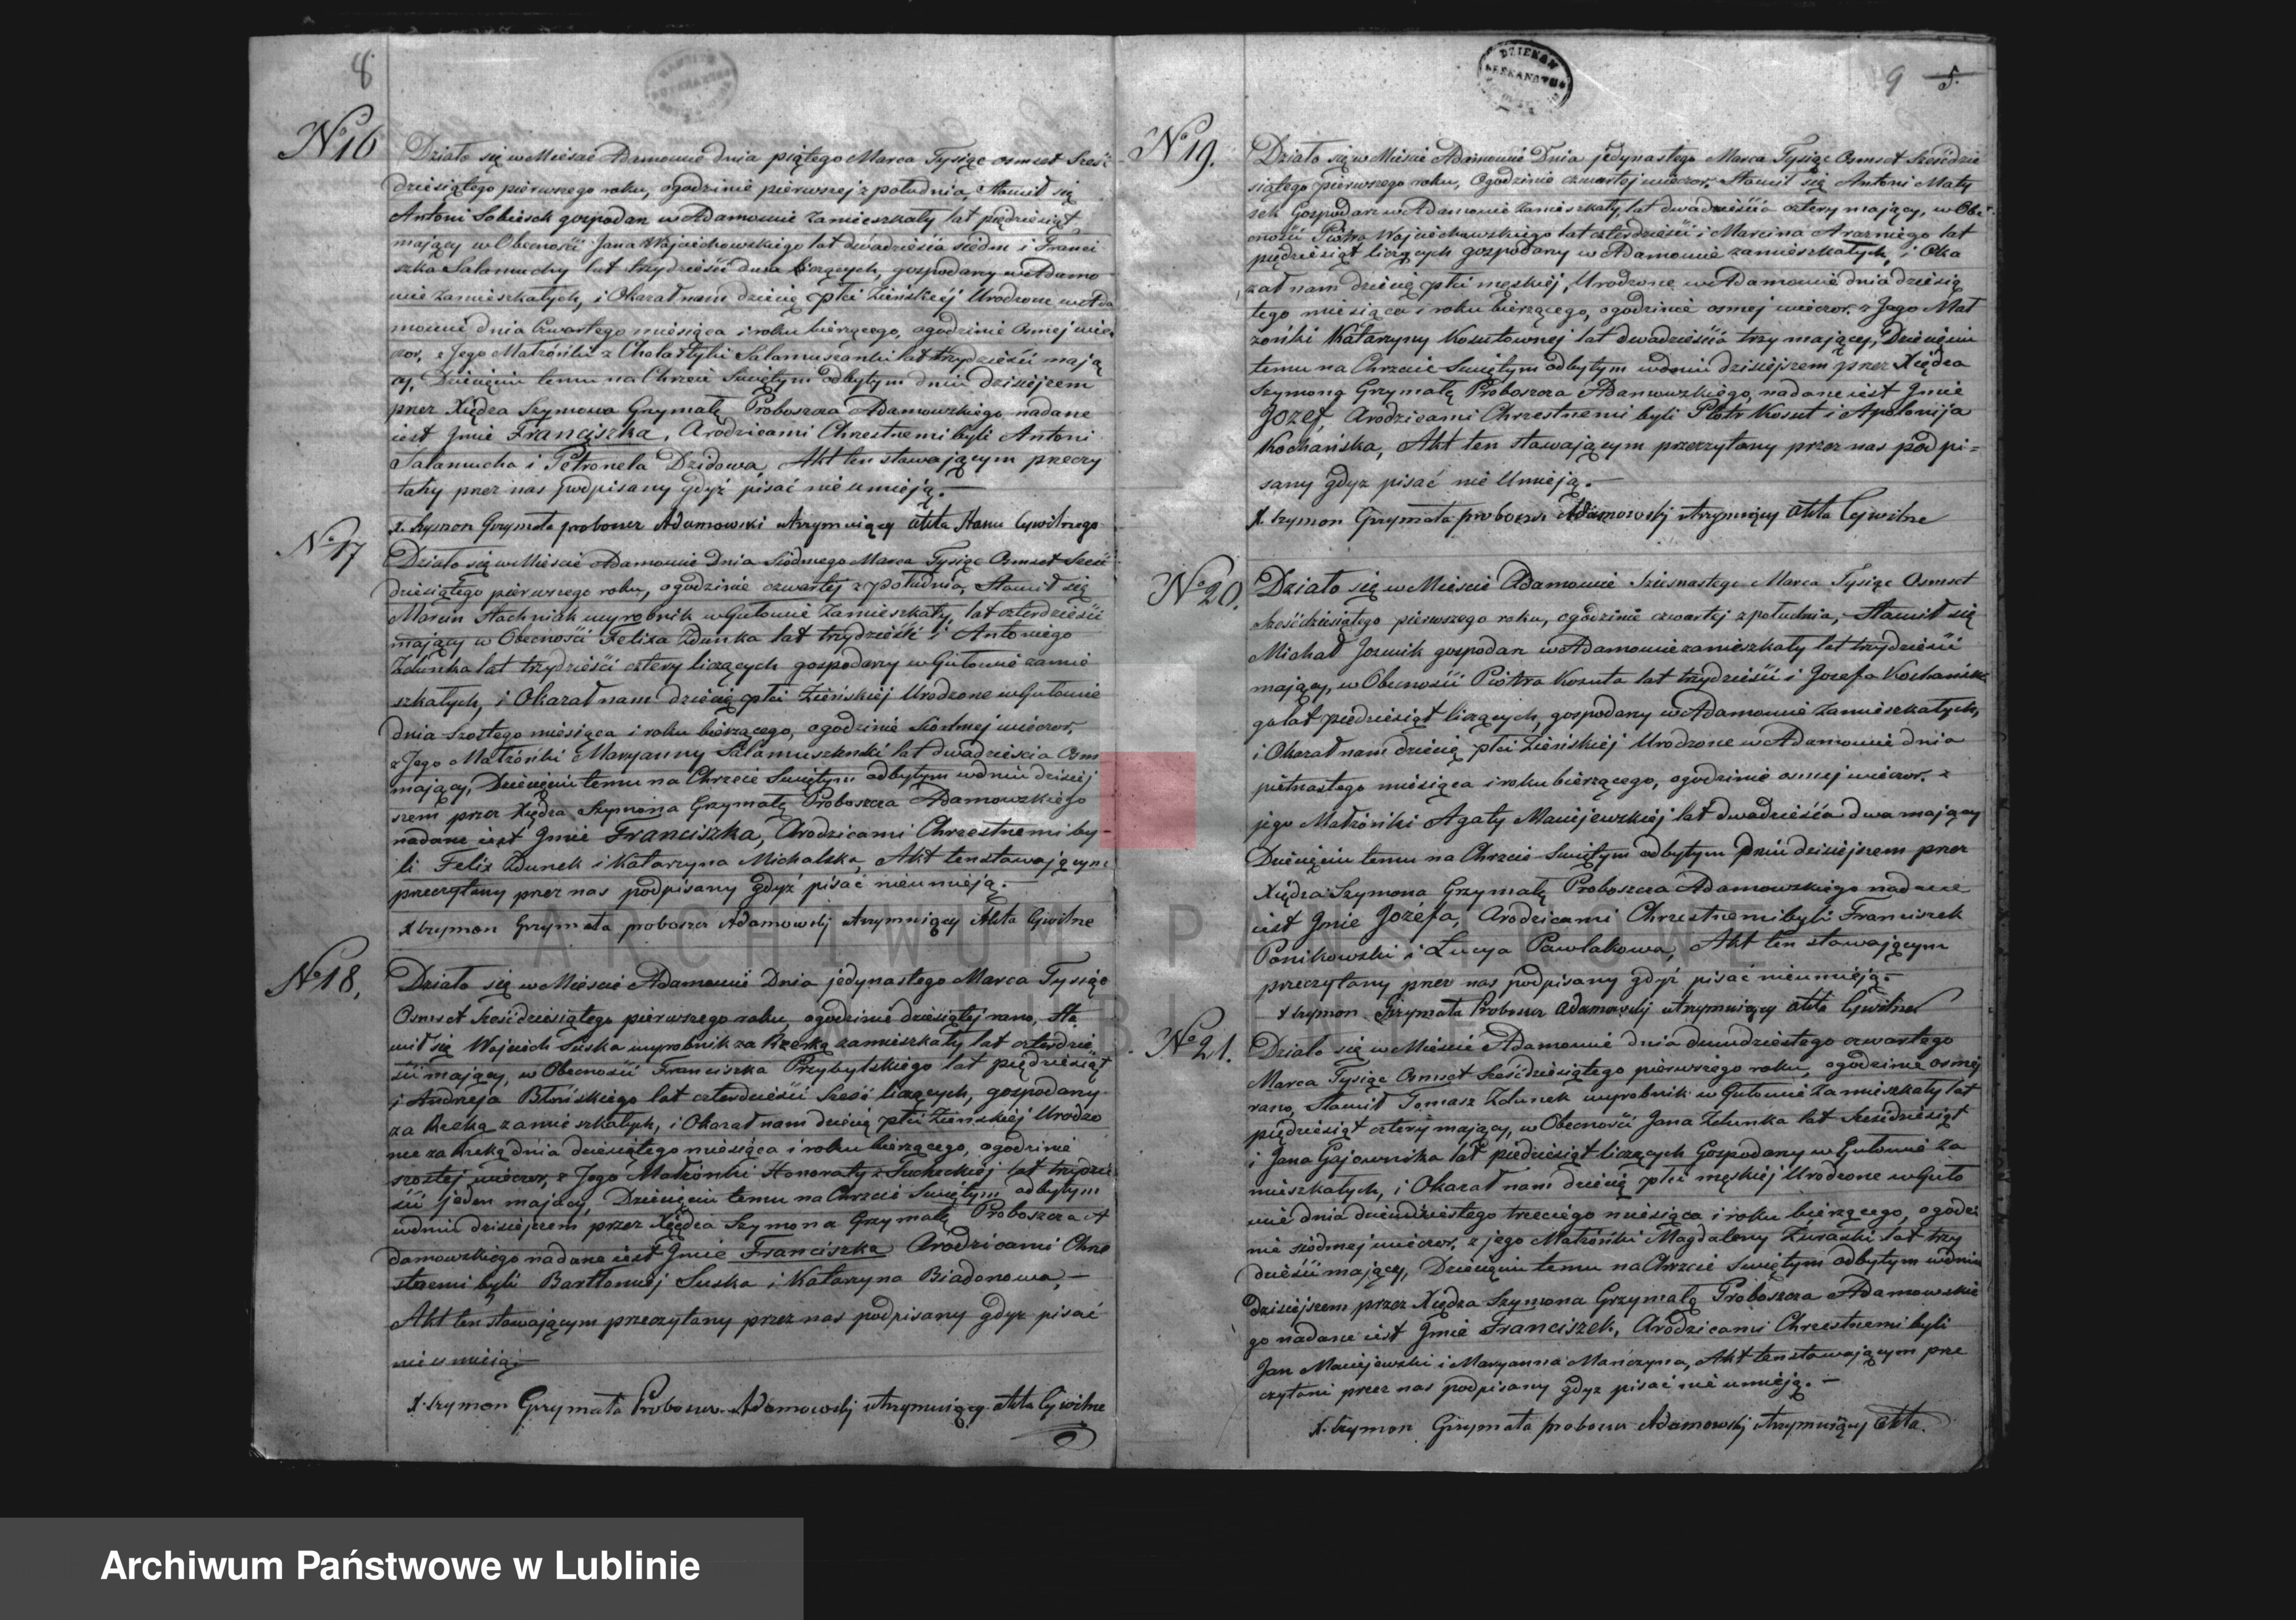 8
No 16
Działo się w Mieście Adamowie dnia piątego Marca Tysiąc osmset Sześć
dziesiątego pierwszego roku, ogodzinie pierwszej z południa, Stawił się
Antoni Sobiesek gospodarz w Adamowie zamieszkały lat pięćdziesiąt
mający w Obecności Jana Wojciechowskiego lat dwadzieścia siedm i Franci
szka Salamuchy lat trzydzieści dwa liczących, gospodarzy w Adamo
wie zamieszkałych, i Okazał nam dziecię płci Zieńskiej Urodzone w Ada
mowie dnia Czwartego miesiąca i roku bierzącego, ogodzinie Osmej wie
czor, z Jego Małżónki z Cholastyki Salamuszanki lat trzydzieści mają
cy, Dziecięciu temu na Chrzcie Swiętym odbytym dniu dzisiejszem
przez Xiędza Szymona Grzymałę Proboszcza Adamowzkiego nadane
iest Jmie Franciszka, Arodzicami Chrzestnemi byli Antoni
Salamucha i Petronela Dzidowa, Akt ten stawającym przeczy
tany przez nas podpisany gdyż pisać nie umieją.—
X. Szymon Grzymała proboszcz Adamowski utrzymuiący akta Stanu Cywilnego
No 17
Działo się w Mieście Adamowie Dnia Siódmego Marca Tysiąc Osmset Sześć
dziesiątego pierwszego roku, ogodzinie czwartej z południa, Stawił się
Marcin Stachniak wyrobnik w Gułowie zamieszkały, lat czterdzieści
mający w Obecności Felixa Zdunka lat trzydzieści i Antoniego
Zdunka lat trzydzieści cztery liczących gospodarzy w Gułowie zamie
szkałych, i Okazał nam dziecię płci Zieńskiej Urodzone w Gułowie
dnia Szostego miesiąca i roku bierzącego, ogodzinie Siódmej wieczor,
z Jego Małżónki Maryanny Salamuszenki lat dwadzieścia Osm
mający, Dziecięciu temu na Chrzcie Swiętym odbytym wdniu dzisiej
szem przez Xiędza Szymona Grzymałę Proboszcza Adamowzkiego
nadane iest Jmie Franciszka, Arodzicami Chrzestnemi by-
li Felix Zdunek i Katarzyna Michalska, Akt ten stawającym
przeczytany przez nas podpisany gdyż pisać nieumieją.—
X Szymon Grzymała proboszcz Adamowskj utrzymuiący Akta Cywilne
No 18.
Działo się w Mieście Adamowie Dnia jedynastego Marca Tysiąc
Osmset Sześćdziesiątego pierwszego roku, ogodzinie dziesiątej rano, Sta
wił się Wojciech Suska wyrobnik za Rzeką zamieszkały lat czterdzie
ści mający, w Obecności Franciszka Przybylskiego lat pięćdziesiąt
i Andrzeja Błońskiego lat czterdzieści Sześć liczących, gospodarzy
za Rzeką zamieszkałych, i Okazał nam dziecię płci Zieńskiej Urodzo
ne za Rzeką dnia dziesiątego miesiąca i roku bierzącego, ogodzinie
szostej wieczor, z Jego Małżónki Honoraty z Tucheckiej lat trzydzie
ści jeden mający, Dziecięciu temu na Chrzcie Swiętym odbytym
wdniu dzisiejszem przez Xiędza Szymona Grzymałę Proboszcza A
damowzkiego nadane iest Jmie Franciszka Arodzicami Chrze
stnemi byli Bartłomiej Suska i Katarzyna Biadonowa,—
Akt ten stawającym przeczytany przez nas podpisany gdyz pisać
nieumieją.—
X. Szymon Grzymała Proboszcz Adamowskj utrzymuiący Akta Cywilne
DZIEKAN
DEKANATU
9 5.
No 19.
Działo się w Mieście Adamowie Dnia jedynastego Marca Tysiąc Osmset Sześćdzie
siątego pierwszego roku, Ogodzinie czwartej wieczor, Stawił się Antoni Maty
sek Gospodarz w Adamowie zamieszkały, lat dwadzieścia cztery mający, w Obe
cności Piotra Wojciechowskiego lat czterdzieści i Marcina lat
pięćdziesiąt liczących gospodarzy w Adamowie zamieszkałych, i Oka
zał nam dziecię płci męskiej, Urodzone w Adamowie dnia dziesią
tego miesiąca i roku bierzącego, ogodzinie osmej wieczor, z Jego Mał
żońki Katarzyny Kosutownej lat dwadzieścia trzy mającej, Dziecięciu
temu na Chrzcie Swiętym odbytym wdniu dzisiejszem przez Xiędza
Szymona Grzymałę Proboszcza Adamowzkiego, nadane iest Jmie
Jozef, Arodzicami Chrzestnemi byli Piotr Kosut i Apolonija
Kochańska, Akt ten stawającym przeczytany przez nas podpi=
sany gdyz pisać nie Umieją.—
X. Szymon Grzymała proboszcz Adamowskj utrzymuiący akta Cywilne
No 20.
Działo się w Mieście Adamowie Szesnastego Marca Tysiąc Osmset
Sześćdziesiątego pierwszego roku, ogodzinie czwartej z południa, Stawił się
Michał Jozwik gospodarz w Adamowie zamieszkały lat trzydzieści
mający, w Obecności Piotra Kosuta lat trzydzieści i Jozefa Kochańskie
go lat pięćdziesiąt liczących, gospodarzy w Adamowie zamieszkałych,
i Okazał nam dziecię płci Zieńskiej Urodzone w Adamowie dnia
piętnastego miesiąca i roku bierzącego, ogodzinie osmej wieczor. z
jego Małżónki Agaty Maciejewskiej lat dwadzieścia dwa mający
Dziecięciu temu na Chrzcie Swiętym odbytym dniu dzisiejszem przez
Xiędza Szymona Grzymałę Proboszcza Adamowzkiego nadane
iest Jmie Jozéfa, Arodzicami Chrzestnemi byli Franciszek
Ponikowski i Łucya Pawlakowa, Akt ten stawającym
przeczytany przez nas podpisany gdyż pisać nieumieją.—
X Szymon Grzymała Proboszcz Adamowskj utrzymuiący akta Cywilne
No 21.
Działo się w Mieście Adamowie dnia dwudziestego czwartego
Marca Tysiąc Osmset Sześćdziesiątego pierwszego roku, ogodzinie osmej
rano, Stawił Tomasz Zdunek wyrobnik w Gułowie Zamieszkały lat
pięćdziesiąt cztery mający, w Obecności Jana Zdunka lat Sześćdziesiąt
i Jana Gajownika lat pięćdziesiąt liczących Gospodarzy w Gułowie Za
mieszkałych, i Okazał nam dziecię płci męskiej Urodzone w Guło
wie dnia dwudziestego trzeciego miesiąca i roku bierzącego, ogodzi
nie siódmej wieczor, z jego Małżónki Magdaleny Zuraski lat trzy
dzieści mający, Dziecięciu temu na Chrzcie Swiętym odbytym wdniu
dzisiejszem przez Xiędza Szymona Grzymałę Proboszcza Adamowskie
go nadane iest Jmie Franciszek, Arodzicami Chrzestnemi byli
Jan Maciejewski i Maryanna Mańczyna, Akt ten stawającym prze
czytani przez nas podpisany gdyz pisać nie umieją.—
X. Szymon Grzymała proboszcz Adamowskj utrzymuiący Akta.
ARCHIWUM PAŃSTWOWE
W LUBLINIE
Archiwum Państwowe w Lublinie